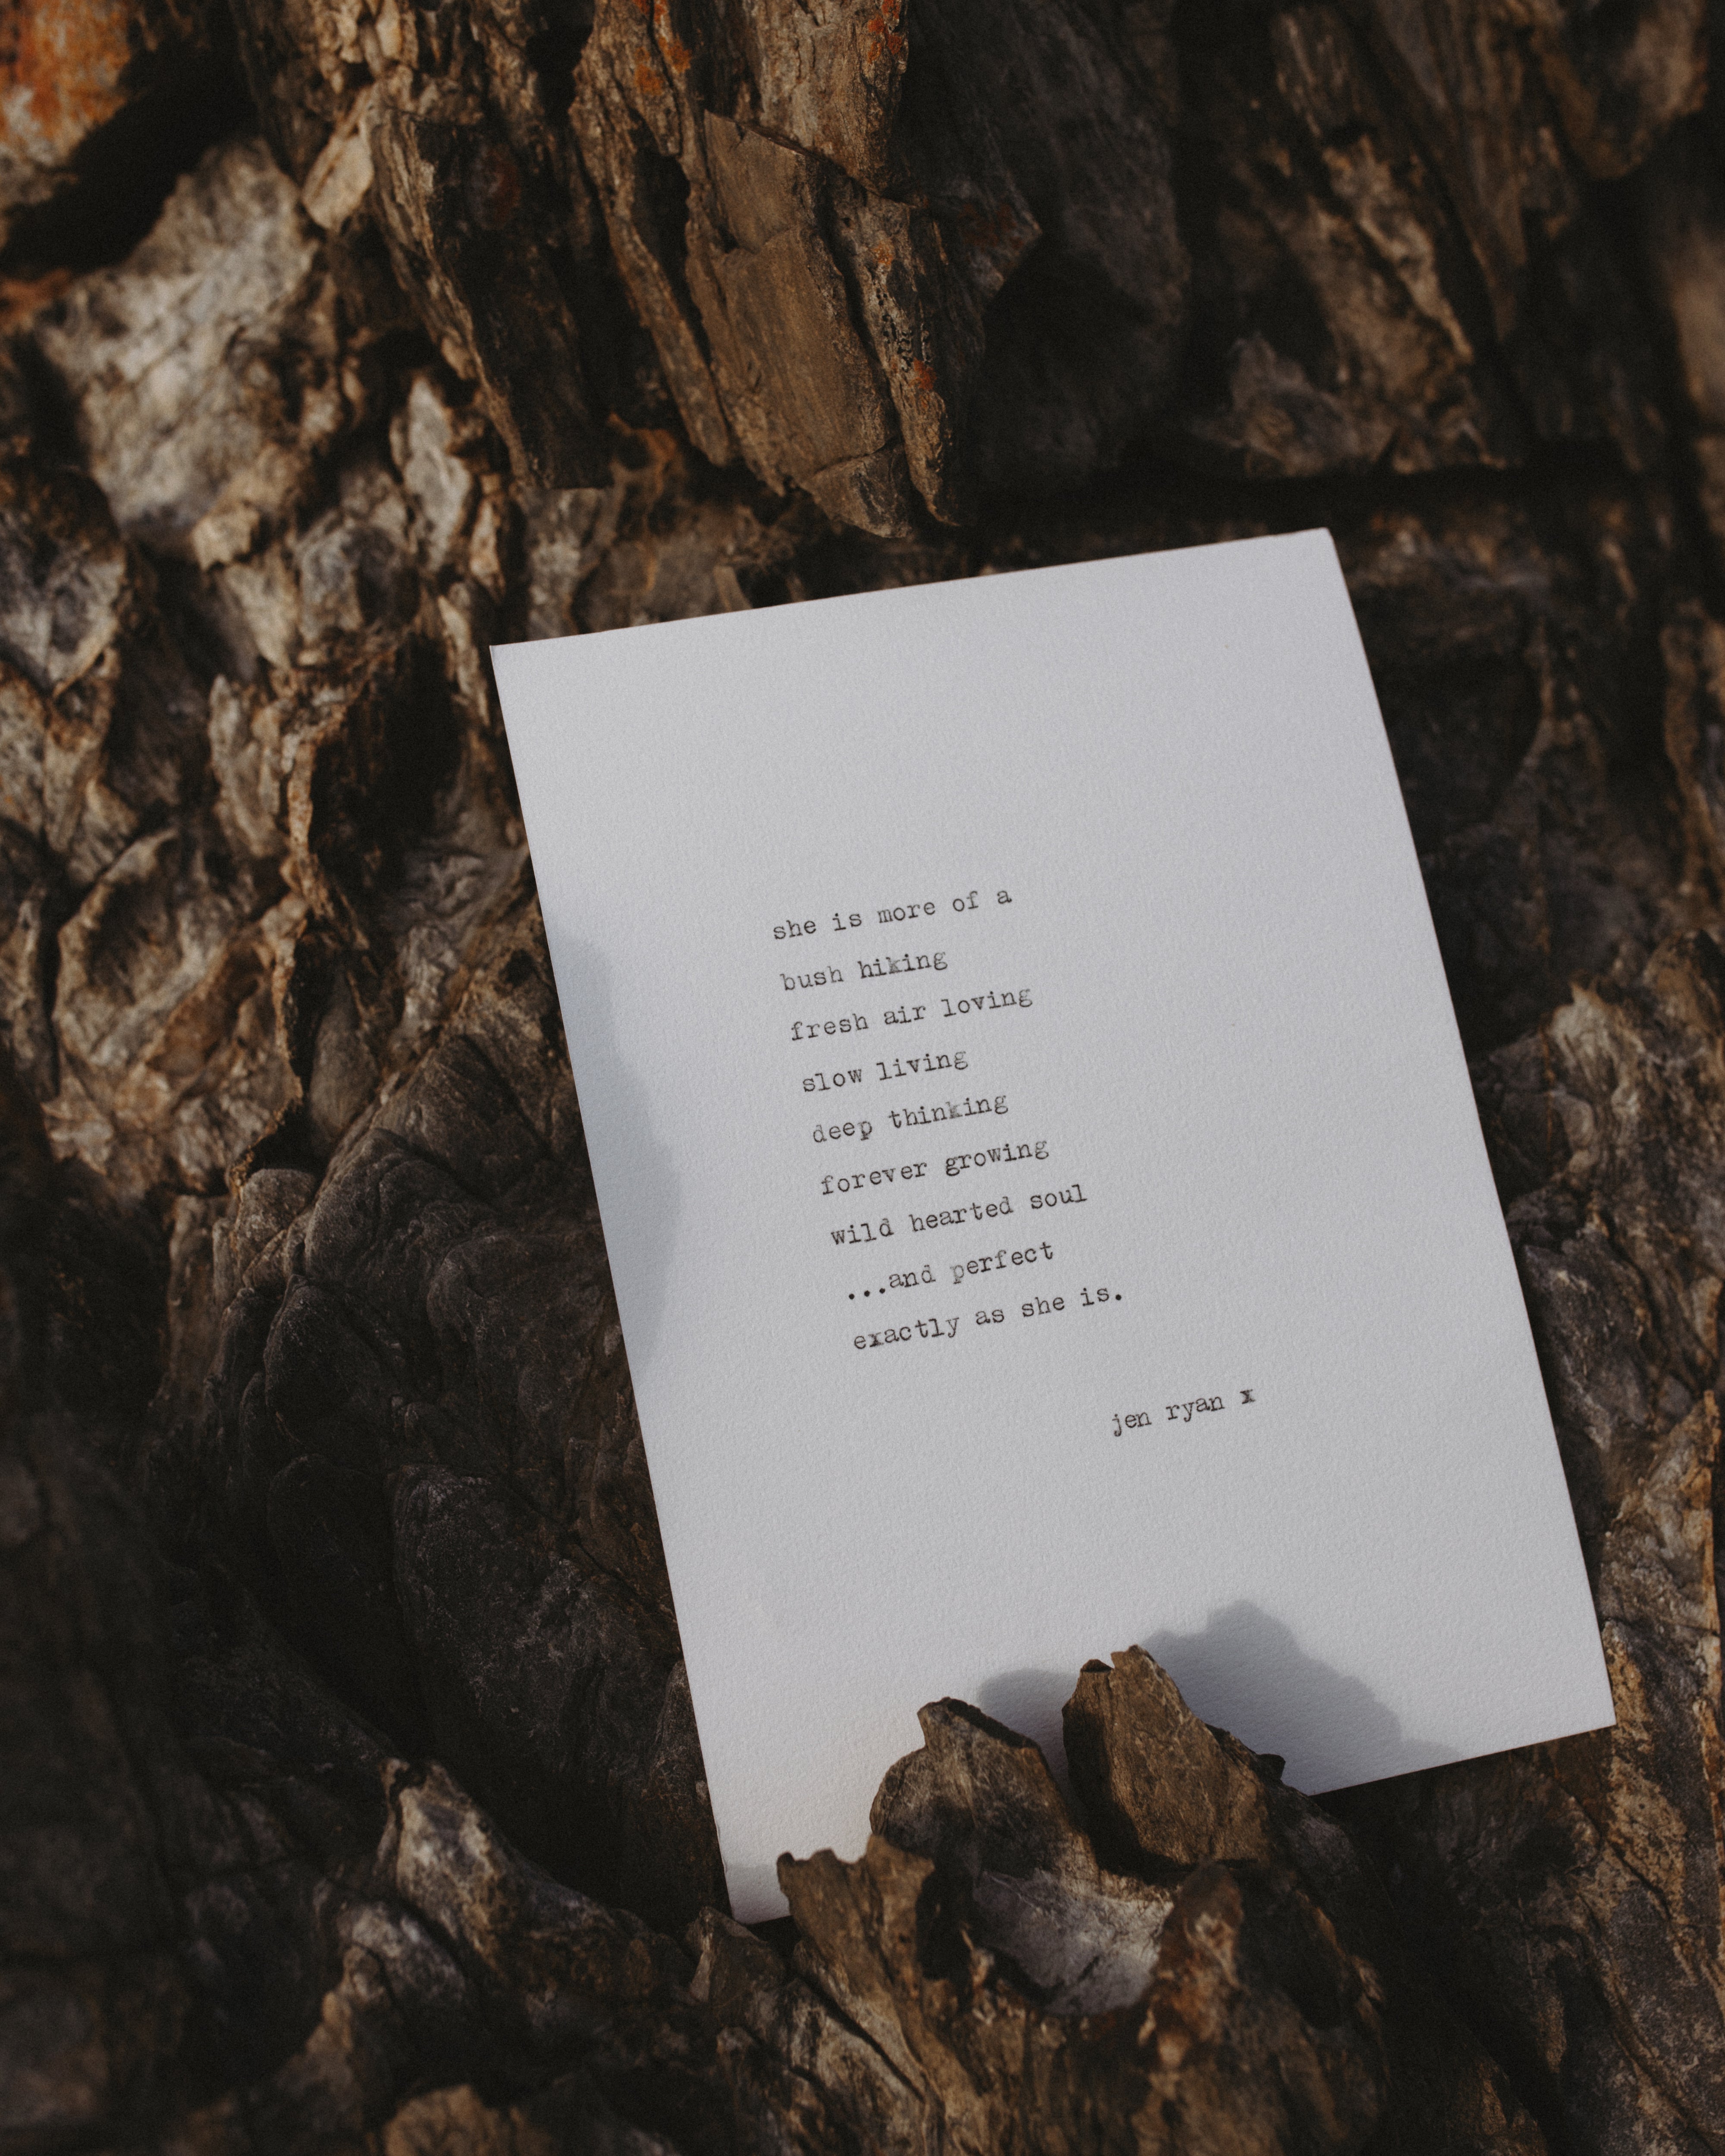 she is more of a
bush hiking
fresh air loving
slow living
deep thinking
forever growing
wild hearted soul
...and perfect
exactly as she is.
jen ryan x